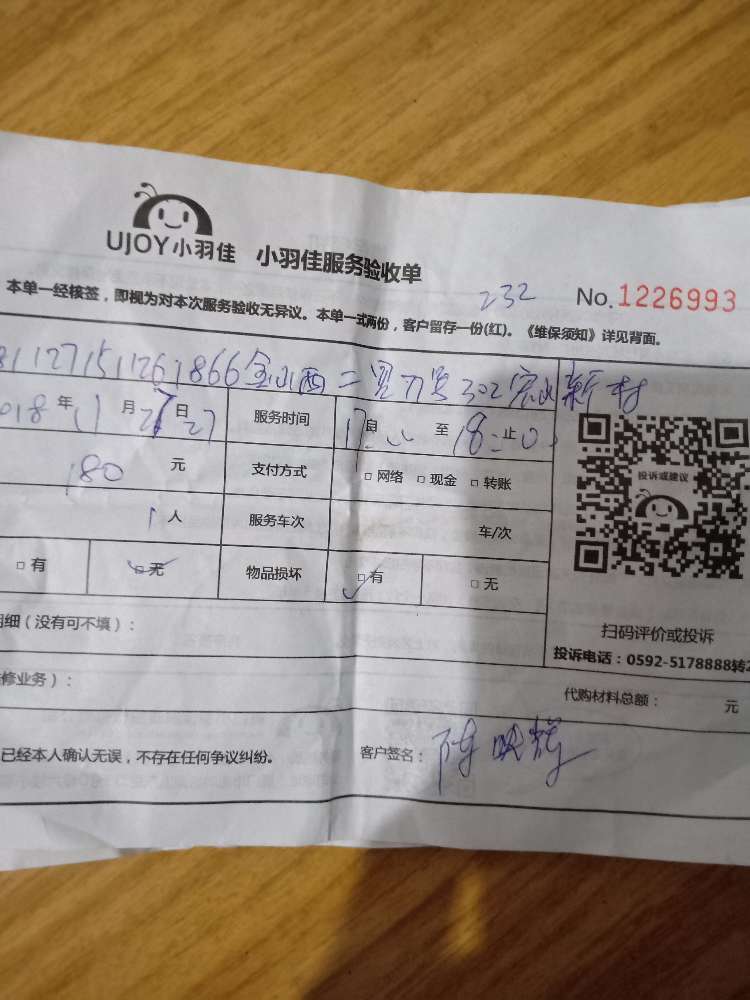 UJOY小羽佳 小羽佳服务验收单
232 No.1226993
本单一经核签，即视为对本次服务验收无异议。本单一式两份，客户留存一份(红)。《维保须知》详见背面。
81127151261866金山西二里 302 新村
018年11月27日 服务时间 17自 至18止
180元 支付方式 □网络 □现金 □转账
投诉或建议
1人 服务车次 车/次
□有 □无 物品损坏 □有 □无
扫码评价或投诉
明细（没有可不填）：
投诉电话：0592-5178888转2
修业务）：
代购材料总额： 元
已经本人确认无误，不存在任何争议纠纷。 客户签名：陈映辉